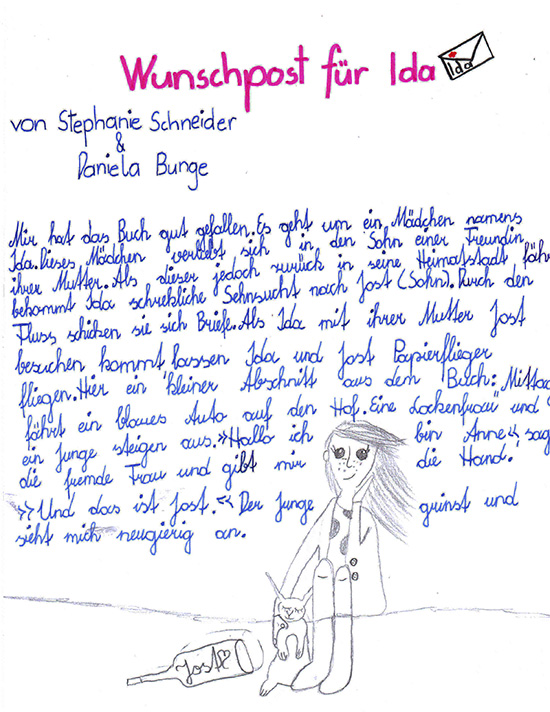 Wunschpost für Ida
Ida
von Stephanie Schneider
&
Daniela Bunge
Mir hat das Buch gut gefallen. Es geht um ein Mädchen namens
Ida. Dieses Mädchen verliebt sich in den Sohn einer Freundin
ihrer Mutter. Als dieser jedoch zurück in seine Heimatstadt fähr
bekommt Ida schrekliche Sehnsucht nach Jost (Sohn). Durch den
Fluss schicken sie sich Briefe. Als Ida mit ihrer Mutter Jost
besuchen kommt lassen Ida und Jost Papierflieger
fliegen. Hier ein kleiner Abschnitt aus dem Buch: Mittag
fährt ein blaues Auto auf den Hof. Eine Lockenfrau und
ein Junge steigen aus. »Hallo ich bin Anne«, sag
die fremde Frau und gibt mir die Hand.
»Und das ist Jost.« Der Junge grinst und
sieht mich neugierig an.
Jost